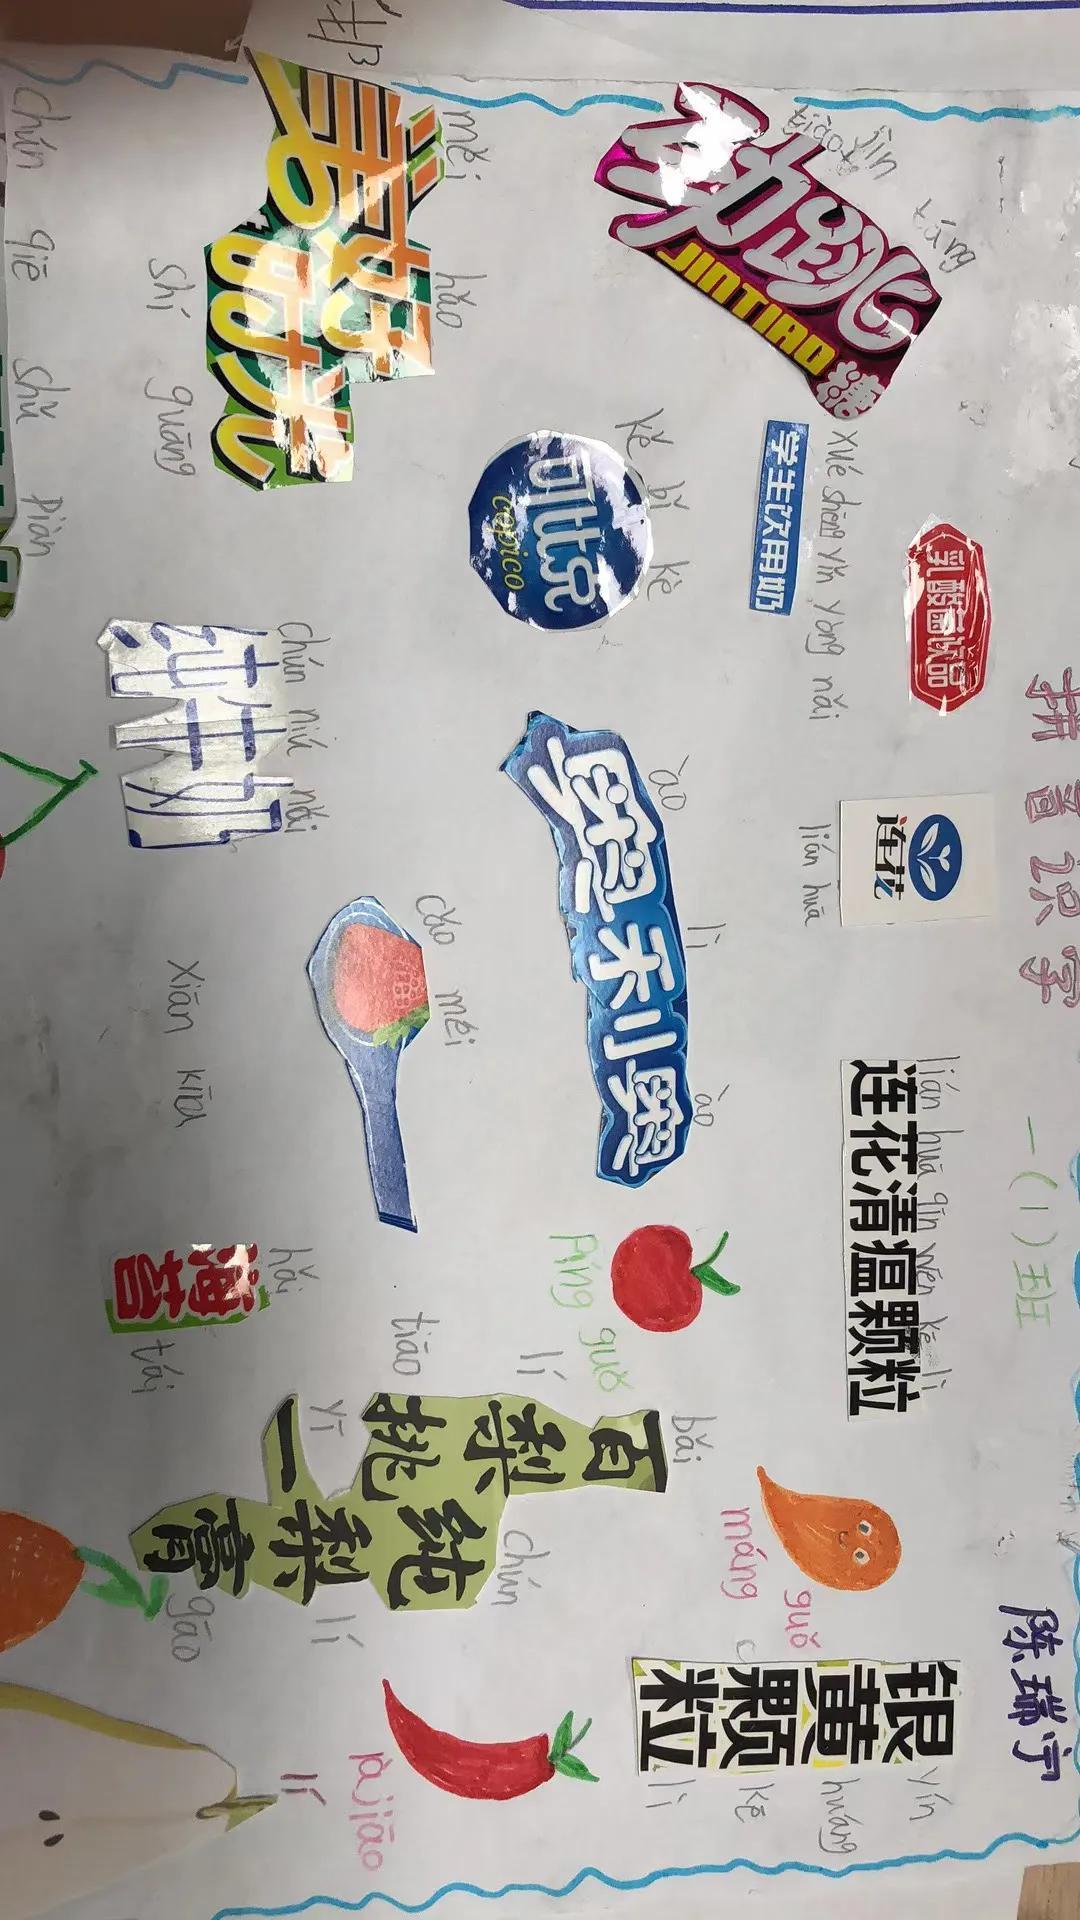 拼音识字
一(1)班
陈瑞宁
jīn
táng
JINTIAO
糖
乳酸菌饮品
xué shēng yǐn yòng nǎi
学生饮用奶
连花
lián huā
lián huā qīn wēn kē lì
连花清瘟颗粒
kě bǐ kè
可比克
copico
ào lì ào
奥利奥
píng guǒ
máng guǒ
yín huáng kē lì
银黄颗粒
měi hǎo
美好
时光
shí guāng
chún niú nǎi
纯牛奶
cǎo méi
xiān
hǎi
海苔
tái
bǎi
lí
tiāo
yī
百梨挑一
chún
lí
gāo
纯梨膏
là jiāo
lí
chún qiē shǔ piàn